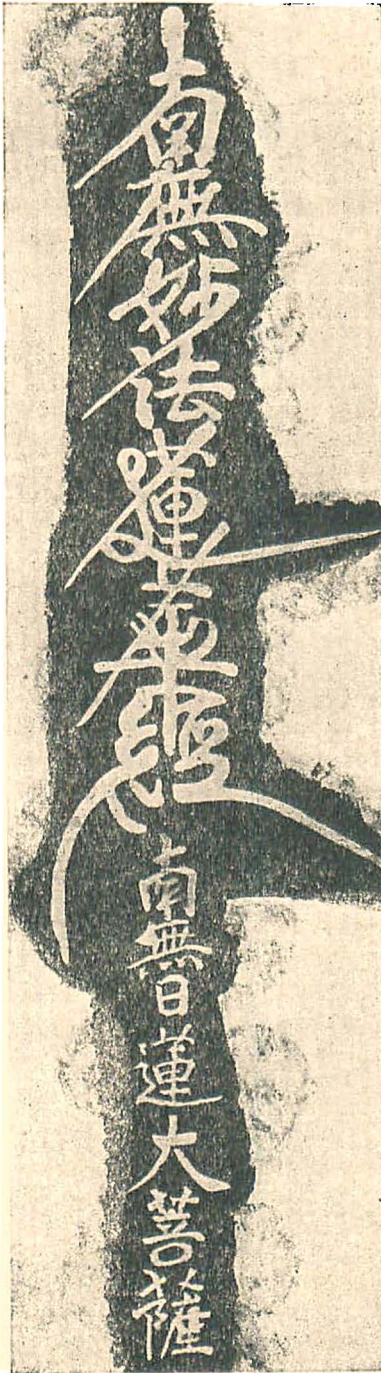 南無妙法蓮華經
南無日蓮大菩薩